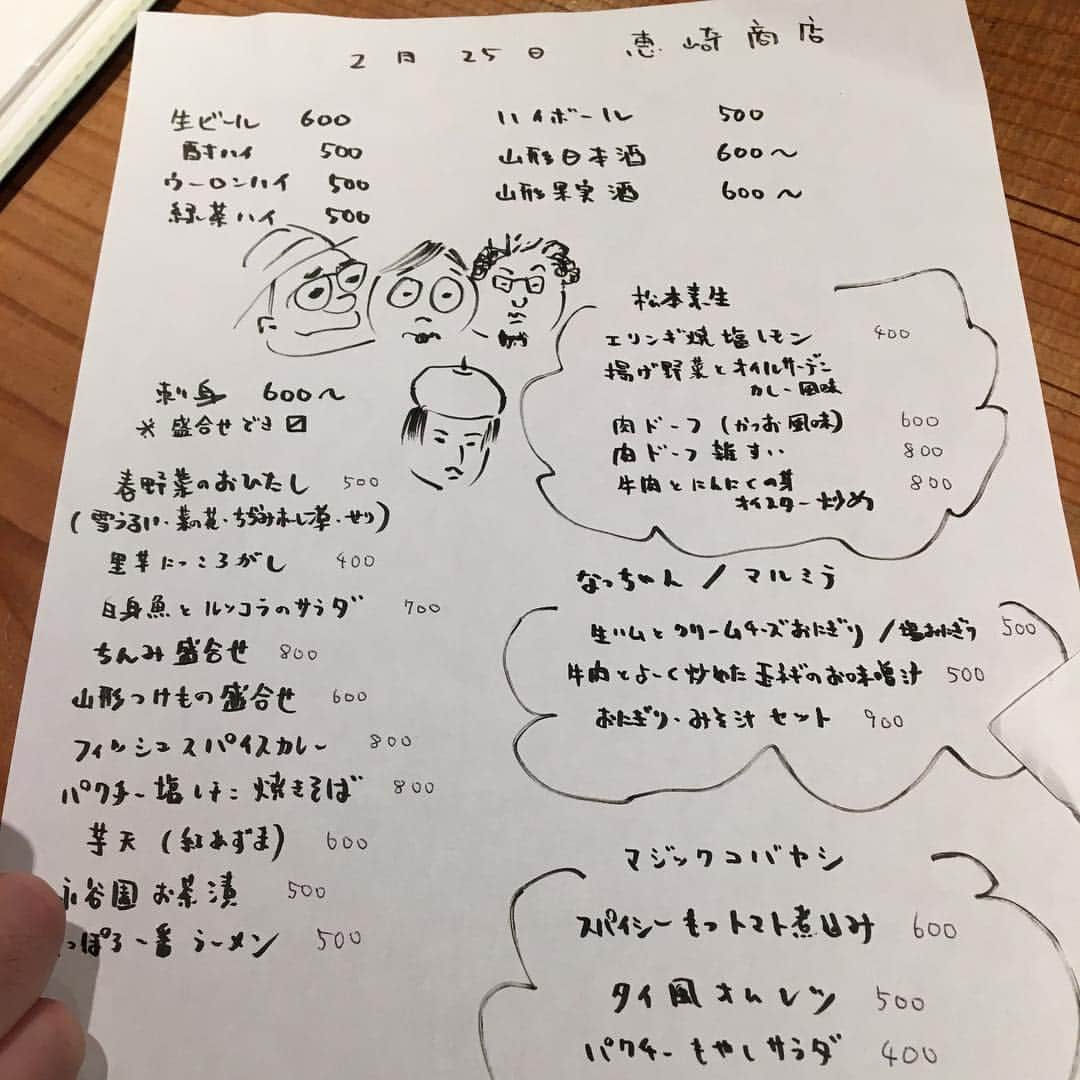 2月25日 恵崎商店
生ビール 600
酎ハイ 500
ウーロンハイ 500
緑茶ハイ 500
ハイボール 500
山形日本酒 600〜
山形果実酒 600〜
刺身 600〜
※盛合せでき〼
春野菜のおひたし 500
(雪うるい・菜の花・ちぢみホーレン草・せり)
里芋にっころがし 400
白身魚とルッコラのサラダ 700
ちんみ盛合せ 800
山形つけもの盛合せ 600
フィッシュスパイスカレー 800
パクチー塩レモン焼きそば 800
芋天(紅あずま) 600
永谷園お茶漬 500
っぽろ一番ラーメン 500
松本素生
エリンギ焼塩レモン 400
揚げ野菜とオイルサーデン
カレー風味
肉ドーフ(かつお風味) 600
肉ドーフ雑すい 800
牛肉とにんにくの芽 800
オイスター炒め
なっちゃん/マルミラ
生ハムとクリームチーズおにぎり/塩おにぎり 500
牛肉とよーく炒めた玉ネギのお味噌汁 500
おにぎり・みそ汁セット 900
マジックコバヤシ
スパイシーもつトマト煮込み 600
タイ風オムレツ 500
パクチーもやしサラダ 400